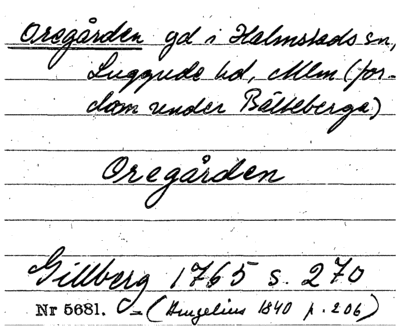 Oregården gd i Halmstads sn,
Luggude hd, Mlm (for-
dom under Bälteberga)
Oregården
Gillberg 1765 s. 270
Nr 5681. = ( 1840 p. 206)